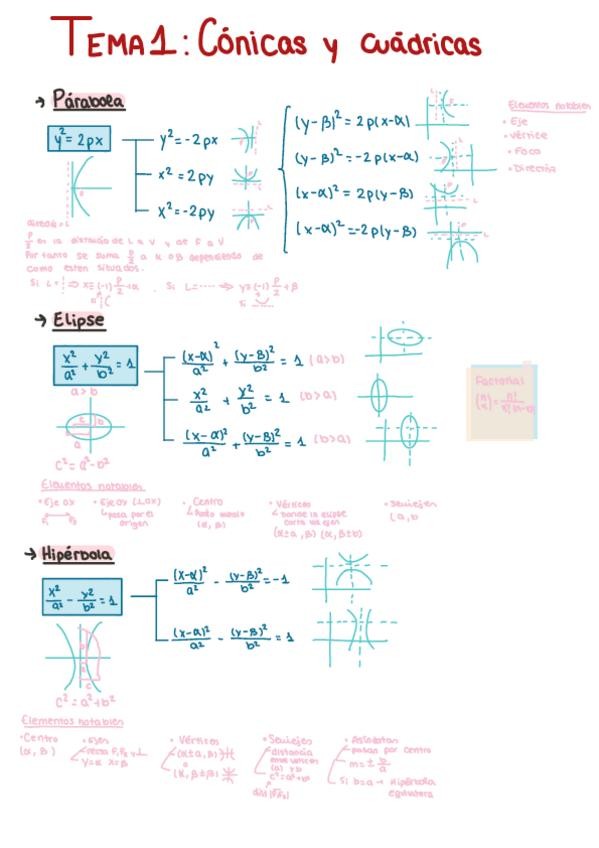 TEMA 1: Cónicas y cuádricas
→ Párabola
y² = 2px
y² = -2px
x² = 2py
x² = -2py
(y-β)² = 2p(x-α)
(y-β)² = -2p(x-α)
(x-α)² = 2p(y-β)
(x-α)² = -2p(y-β)
Elementos notables
• Eje
• Vértice
• Foco
• Directriz
p/2 es la distancia de L a V y de F a V
Por tanto se suma p/2 a α o β dependiendo de
como esten situados.
→ Elipse
x²/a² + y²/b² = 1
a > b
c² = a² - b²
(x-α)²/a² + (y-β)²/b² = 1 (a>b)
x²/a² + y²/b² = 1 (b>a)
(x-α)²/a² + (y-β)²/b² = 1 (b>a)
Factorial
Elementos notables
• Eje OX
• Eje OY (⊥OX)
pasa por el
origen
• Centro
Punto medio
(α, β)
• Vértices
donde la elipse
corta los ejes
(α±a, β) (α, β±b)
• Semiejes
(a,b
→ Hipérbola
x²/a² - y²/b² = 1
c² = a² + b²
(x-α)²/a² - (y-β)²/b² = -1
(x-α)²/a² - (y-β)²/b² = 1
Elementos notables
• Centro
(α, β)
• Ejes
y=α x=β
• Vértices
(α±a, β)
o
(α, β±b)
• Semiejes
distancia
c² = a² + b²
• Asíntotas
pasan por centro
m = ± b/a
Si b=a → Hipérbola
equilatera